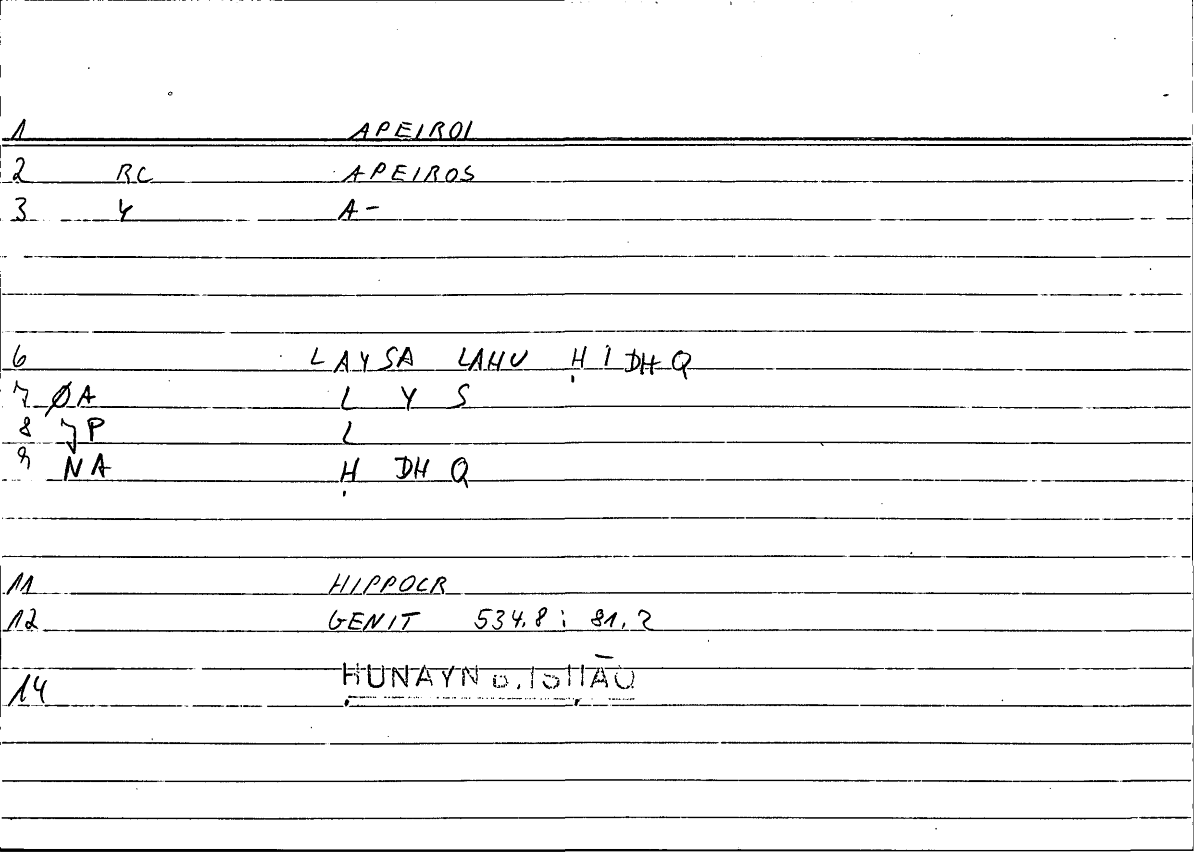 1 APEIROI
2 RC APEIROS
3 Y A-
6 LAYSA LAHU ḤIDHQ
7 ØA L Y S
8 JP L
9 NA Ḥ DH Q
11 HIPPOCR
12 GENIT 534.8; 81.2
14 ḤUNAYN b. ISḤĀQ